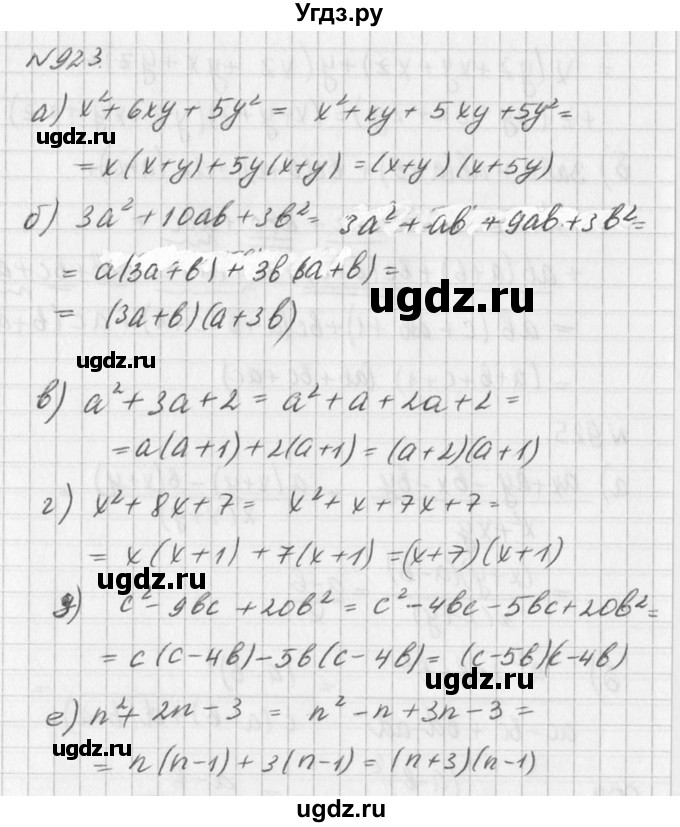 Угдз.ру
№923.
а) x² + 6xy + 5y² = x² + xy + 5xy + 5y² =
ugdz.ru
= x(x+y) + 5y(x+y) = (x+y)(x+5y)
б) 3a² + 10ab + 3b² = 3a² + ab + 9ab + 3b² =
ugdz.ru
= a(3a+b) + 3b(3a+b) =
ugdz.ru
= (3a+b)(a+3b)
ugdz.ru
в) a² + 3a + 2 = a² + a + 2a + 2 =
= a(a+1) + 2(a+1) = (a+2)(a+1)
г) x² + 8x + 7 = x² + x + 7x + 7 =
= x(x+1) + 7(x+1) = (x+7)(x+1)
ugdz.ru
д) c² - 9bc + 20b² = c² - 4bc - 5bc + 20b² =
= c(c-4b) - 5b(c-4b) = (c-5b)(c-4b)
ugdz.ru
е) n² + 2n - 3 = n² - n + 3n - 3 =
ugdz.ru
= n(n-1) + 3(n-1) = (n+3)(n-1)
ugdz.ru